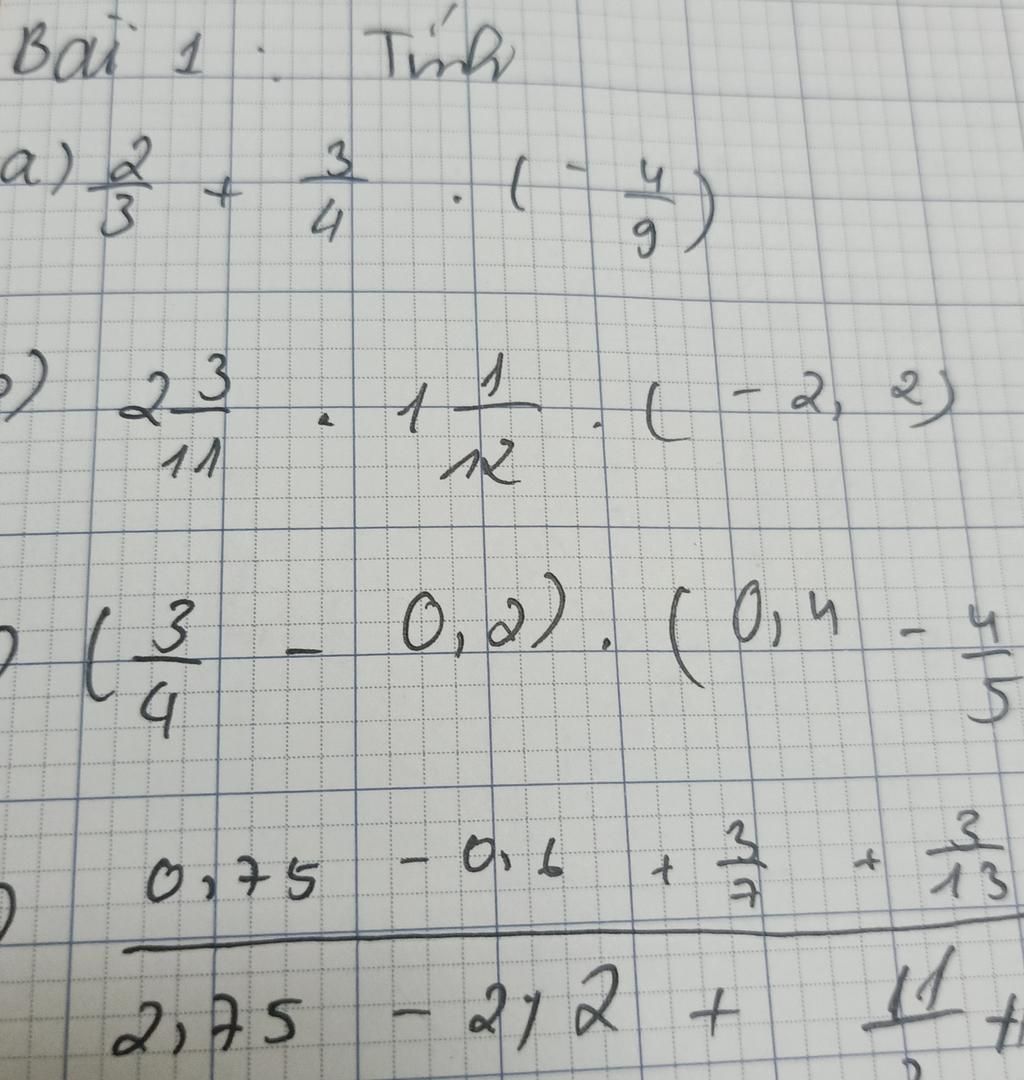 Bài 1 : Tính
a) 2/3 + 3/4 . ( - 4/9 )
) 2 3/11 . 1 1/12 . ( - 2, 2 )
) ( 3/4 - 0,2 ) . ( 0,4 - 4/5
) 0,75 - 0,6 + 3/7 + 3/13
2,75 - 2,2 + 11/ +